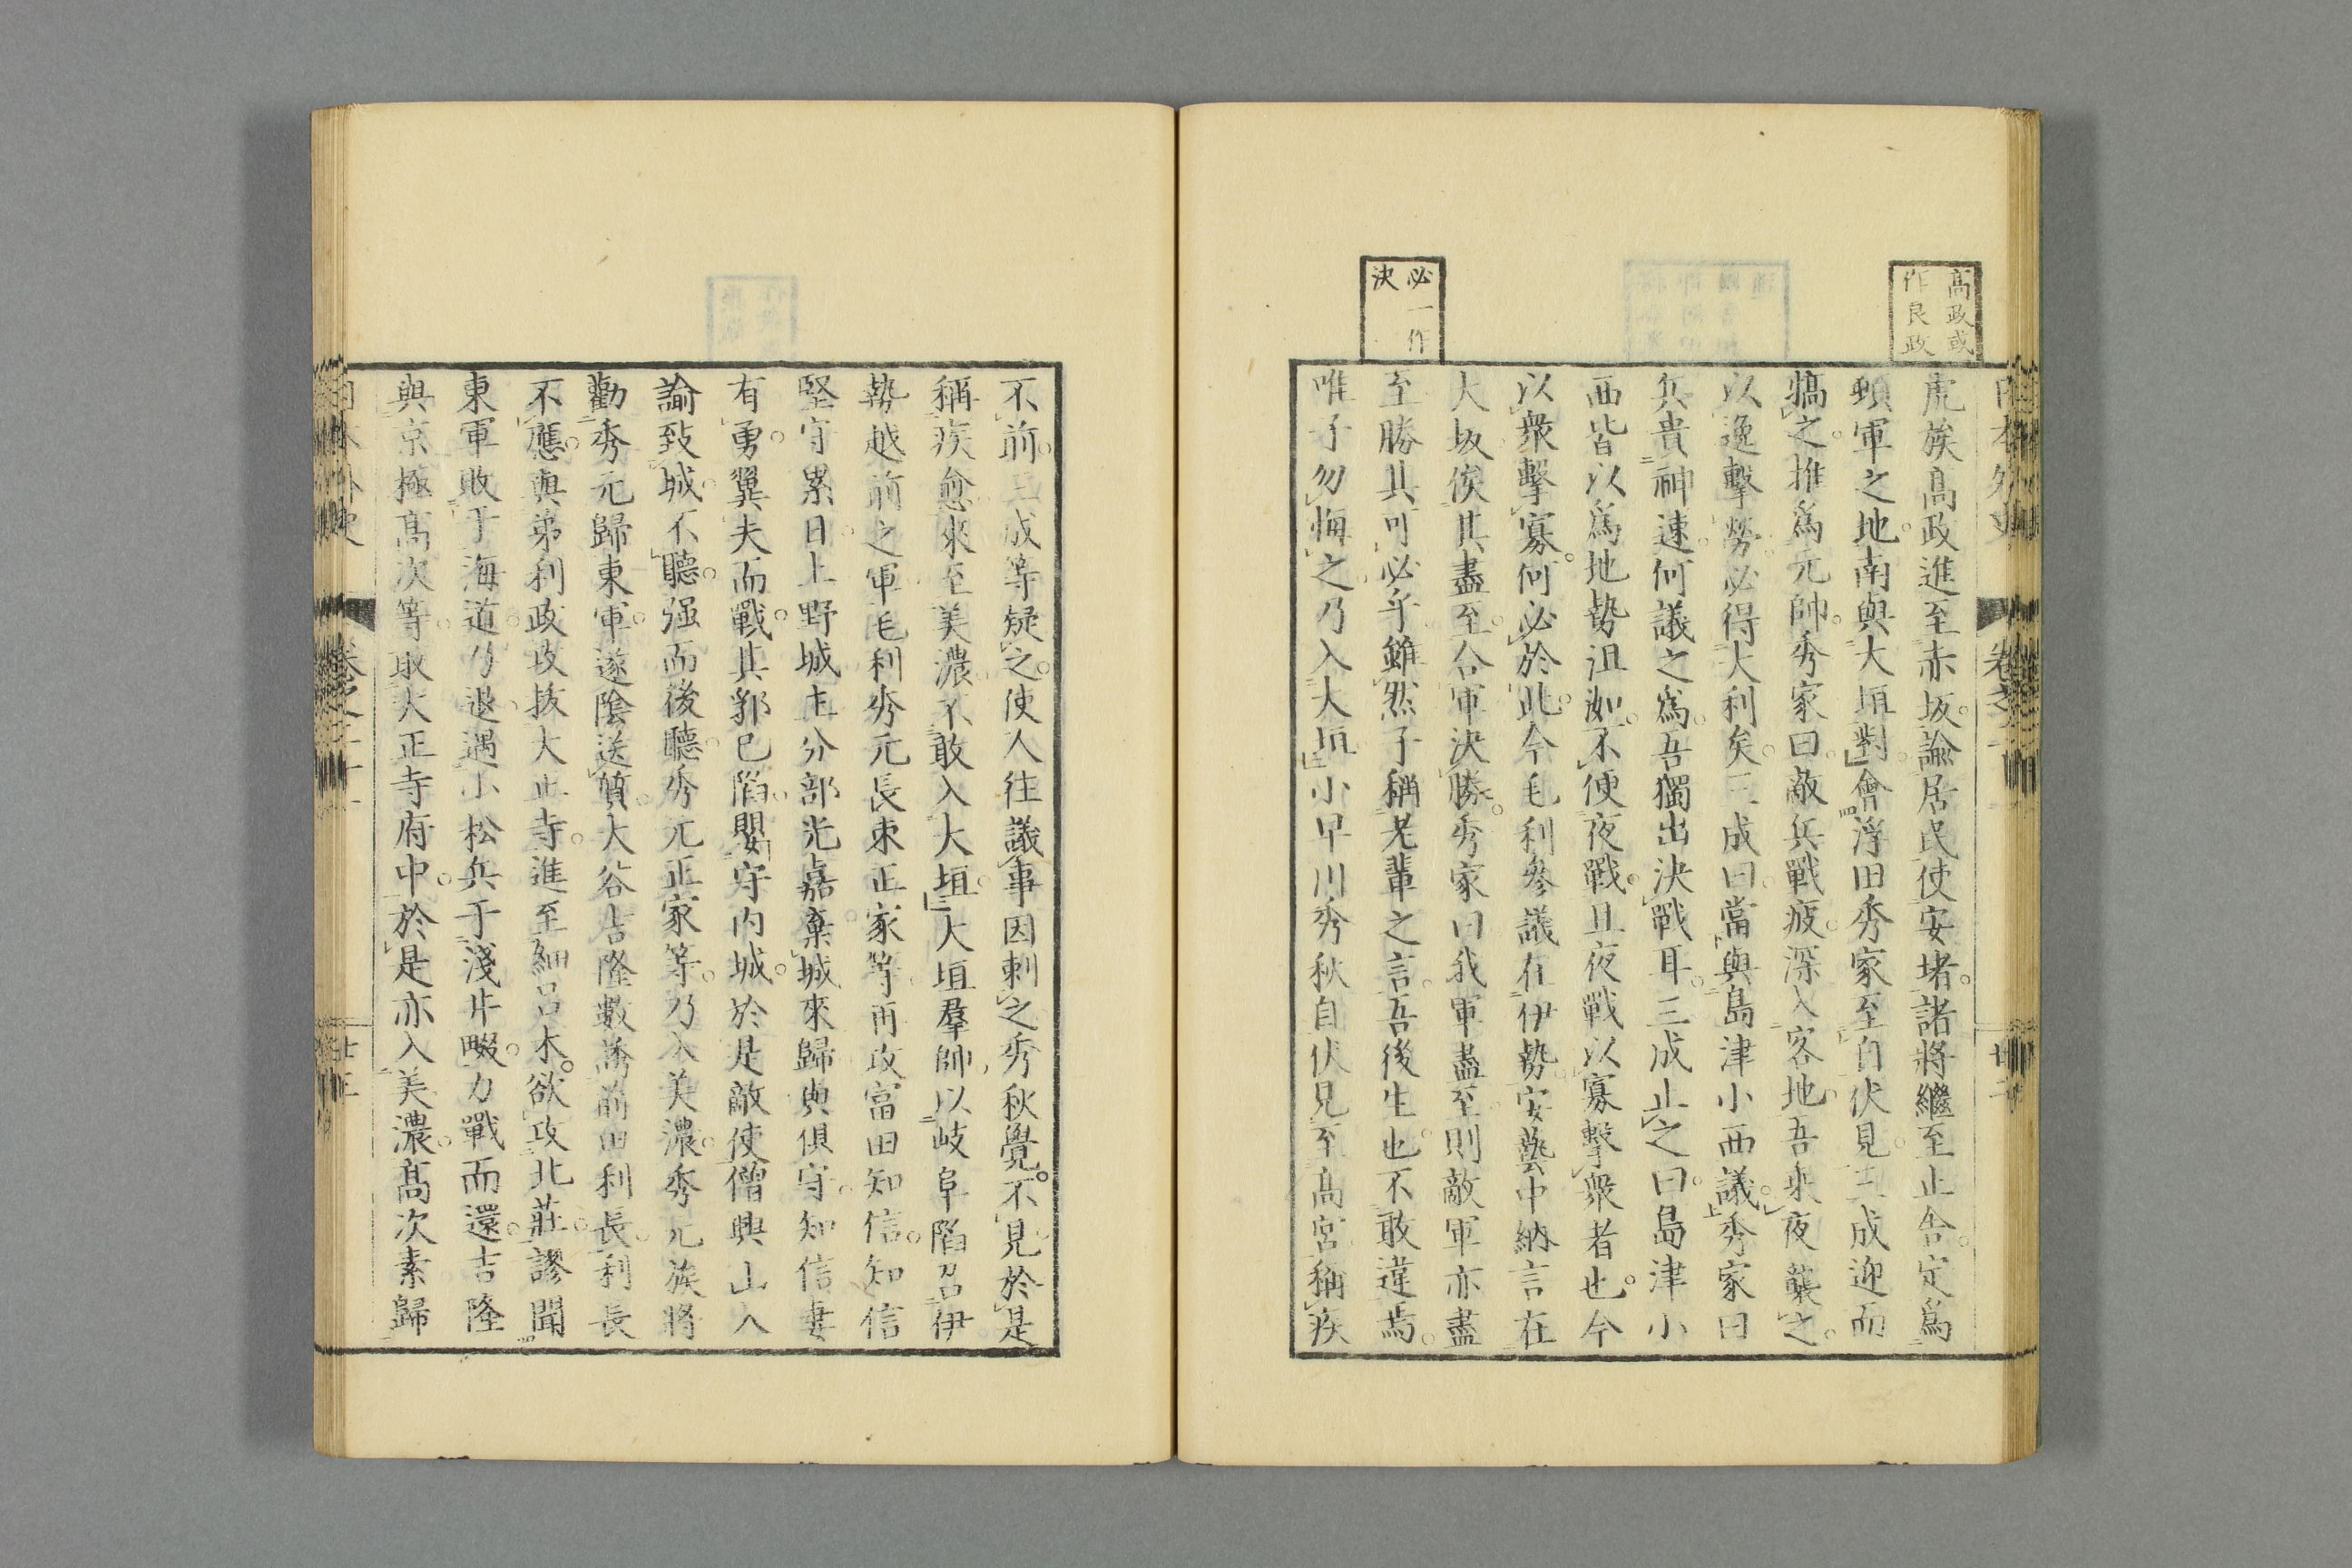 高政或
作良政
必一作
決
虎族高政進至赤坂諭居民使安堵諸將繼至止舍定爲
頓軍之地南與大垣對會浮田秀家至自伏見三成迎而
犒之推爲元帥秀家曰敵兵戰疲深入客地吾乘夜襲之
以逸擊勞必得大利矣三成曰當與島津小西議秀家曰
兵貴神速何議之爲吾獨出決戰耳三成止之曰島津小
西皆以爲地勢沮洳不便夜戰且夜戰以寡擊衆者也今
以衆擊寡何必於此今毛利參議在伊勢安藝中納言在
大坂俟其盡至合軍決勝秀家曰我軍盡至則敵軍亦盡
至勝其可必乎雖然子稱老輩之言吾後生也不敢違焉
唯子勿悔之乃入大垣小早川秀秋自伏見至高宮稱疾
不前三成等疑之使人往議事因刺之秀秋覺不見於是
稱疾愈來至美濃不敢入大垣大垣羣帥以岐阜陷召伊
勢越前之軍毛利秀元長束正家等再攻富田知信知信
堅守累日上野城主分部光嘉棄城來歸與俱守知信妻
有勇翼夫而戰其郛已陷嬰守内城於是敵使僧興山入
諭致城不聽强而後聽秀元正家等乃入美濃秀元族將
勸秀元歸東軍遂陰送質大谷吉隆數誘前田利長利長
不應與弟利政攻抜大正寺進至細呂木欲攻北莊謬聞
東軍敗于海道乃退遇小松兵于淺井畷力戰而還吉隆
與京極高次等取大正寺府中於是亦入美濃高次素歸